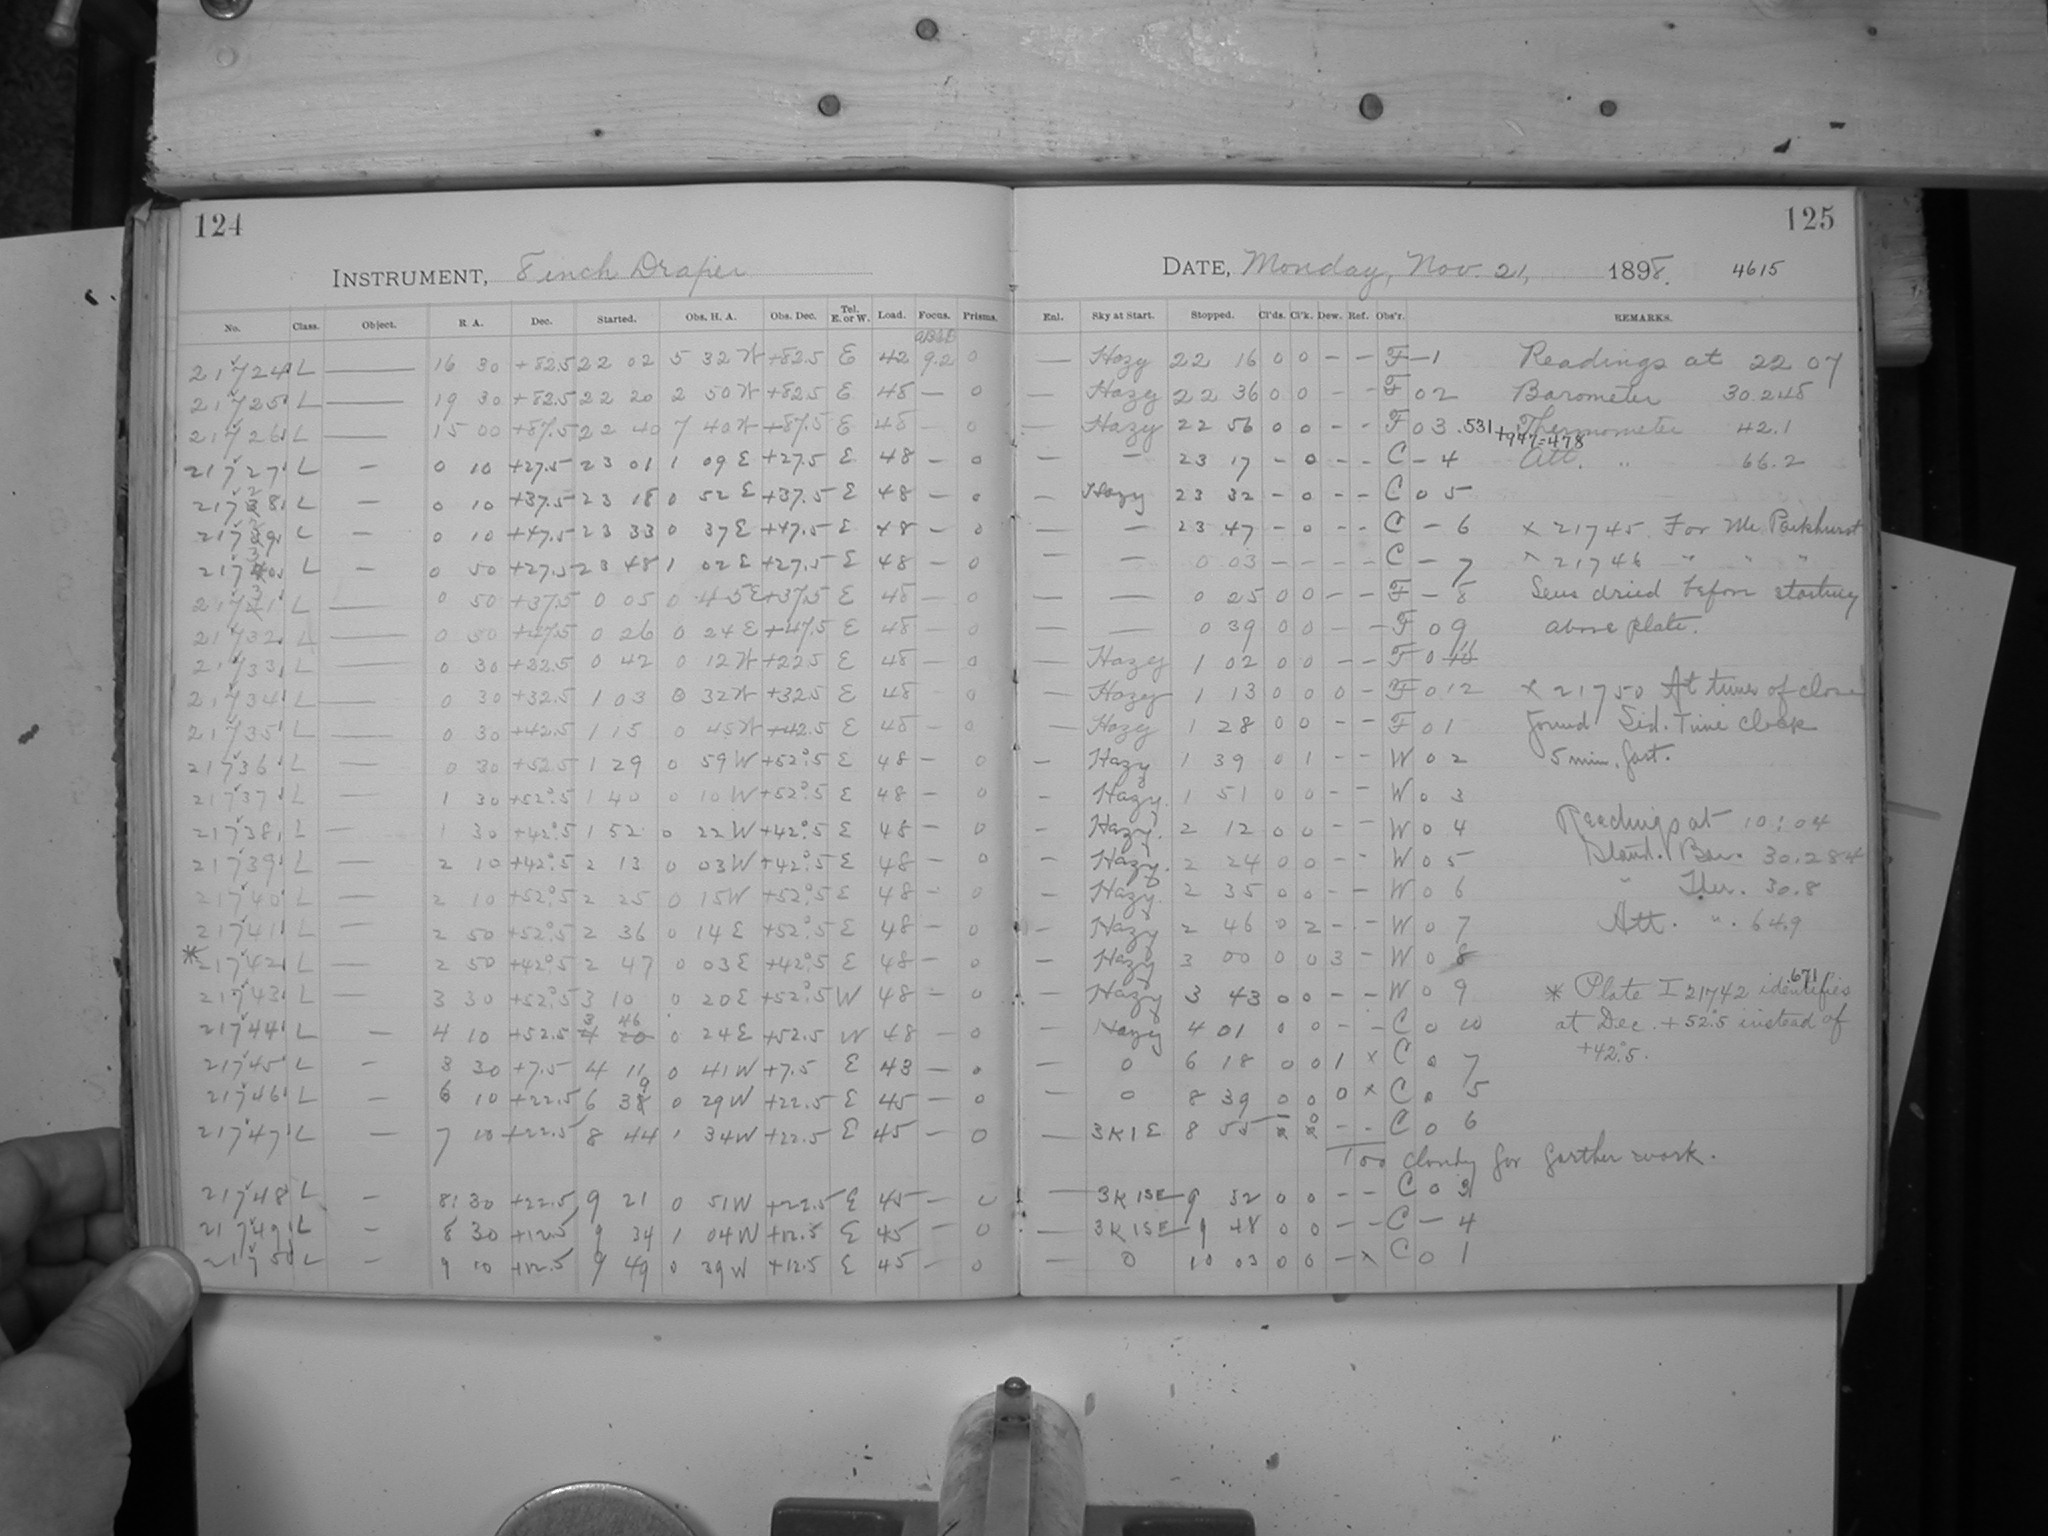 124
125
INSTRUMENT, 8 inch Draper
DATE, Monday, Nov. 21, 1898. 4615
No. Class. Object. R. A. Dec. Started. Obs. H. A. Obs. Dec. Tel. E. or W. Load. Focus. Prisms. Enl. Sky at Start. Stopped. Cl'ds. Cl'k. Dew. Ref. Obs'r. REMARKS.
21724 L — 16 30 +82.5 22 02 5 32 W +82.5 E 42 9.2 0 — Hazy 22 16 0 0 - - F - 1 Readings at 22 07
21725 L — 19 30 +82.5 22 20 2 50 W +82.5 E 48 — 0 — Hazy 22 36 0 0 - - F 0 2 Barometer 30.248
21726 L — 15 00 +87.5 22 40 7 40 W +87.5 E 48 — 0 — Hazy 22 56 0 0 - - F 0 3 .531 +947=478 Thermometer 42.1
21727 L — 0 10 +27.5 23 01 1 09 E +27.5 E 48 — 0 — — 23 17 - 0 - - C - 4 Att. " 66.2
21728 L — 0 10 +37.5 23 18 0 52 E +37.5 E 48 — 0 — Hazy 23 32 - 0 - - C 0 5
21729 L — 0 10 +47.5 23 33 0 37 E +47.5 E 48 — 0 — — 23 47 - 0 - - C - 6 × 21745 For Mr Parkhurst
21730 L — 0 50 +27.5 23 48 1 02 E +27.5 E 48 — 0 — — 0 03 - - - - C - 7 × 21746 " " "
21731 L — 0 50 +37.5 0 05 0 45 E +37.5 E 48 — 0 — — 0 25 0 0 - - F - 8 Lens dried before starting
21732 L — 0 50 +47.5 0 26 0 24 E +47.5 E 48 — 0 — — 0 39 0 0 - - F 0 9 above plate.
21733 L — 0 30 +22.5 0 42 0 12 W +22.5 E 48 — 0 — Hazy 1 02 0 0 - - F 0 11
21734 L — 0 30 +32.5 1 03 0 32 W +32.5 E 48 — 0 — Hazy 1 13 0 0 0 - F 0 12 × 21750 At time of close
21735 L — 0 30 +42.5 1 15 0 45 W +42.5 E 48 — 0 — Hazy 1 28 0 0 - - F 0 1 found Sid. Time clock
21736 L — 0 30 +52.5 1 29 0 59 W +52°.5 E 48 — 0 — Hazy 1 39 0 1 - - W 0 2 5 min. fast.
21737 L — 1 30 +52°.5 1 40 0 10 W +52°.5 E 48 — 0 — Hazy. 1 51 0 0 - - W 0 3
21738 L — 1 30 +42°.5 1 52 0 22 W +42°.5 E 48 — 0 — Hazy. 2 12 0 0 - - W 0 4 Readings at 10:04
21739 L — 2 10 +42°.5 2 13 0 03 W +42°.5 E 48 — 0 — Hazy. 2 24 0 0 - - W 0 5 Stand. Bar. 30.284
21740 L — 2 10 +52°.5 2 25 0 15 W +52°.5 E 48 — 0 — Hazy. 2 35 0 0 - - W 0 6 " Ther. 30.8
21741 L — 2 50 +52°.5 2 36 0 14 E +52°.5 E 48 — 0 — Hazy 2 46 0 2 - - W 0 7 Att. " 64.9
* 21742 L — 2 50 +42°.5 2 47 0 03 E +42°.5 E 48 — 0 — Hazy 3 00 0 0 3 - W 0 8
21743 L — 3 30 +52°.5 3 10 0 20 E +52°.5 W 48 — 0 — Hazy 3 43 0 0 - - W 0 9 * Plate I 21742 identifies .671
21744 L — 4 10 +52.5 3 46 0 24 E +52.5 W 48 — 0 — Hazy 4 01 0 0 - - C 0 10 at Dec. +52°.5 instead of
21745 L — 3 30 +7.5 4 11 0 41 W +7.5 E 43 — 0 — 0 6 18 0 0 1 × C 0 7 +42°.5.
21746 L — 6 10 +22.5 6 39 0 29 W +22.5 E 45 — 0 — 0 8 39 0 0 0 × C 0 5
21747 L — 7 10 +22.5 8 44 1 34 W +22.5 E 45 — 0 — 3K1E 8 55 - 0 - - C 0 6
Too cloudy for further work.
21748 L — 8 30 +22.5 9 21 0 51 W +22.5 E 45 — 0 — 3K1SE 9 32 0 0 - - C 0 3
21749 L — 8 30 +12.5 9 34 1 04 W +12.5 E 45 — 0 — 3K1SE 9 48 0 0 - - C - 4
21750 L — 9 10 +12.5 9 49 0 39 W +12.5 E 45 — 0 — 0 10 03 0 0 - × C 0 1